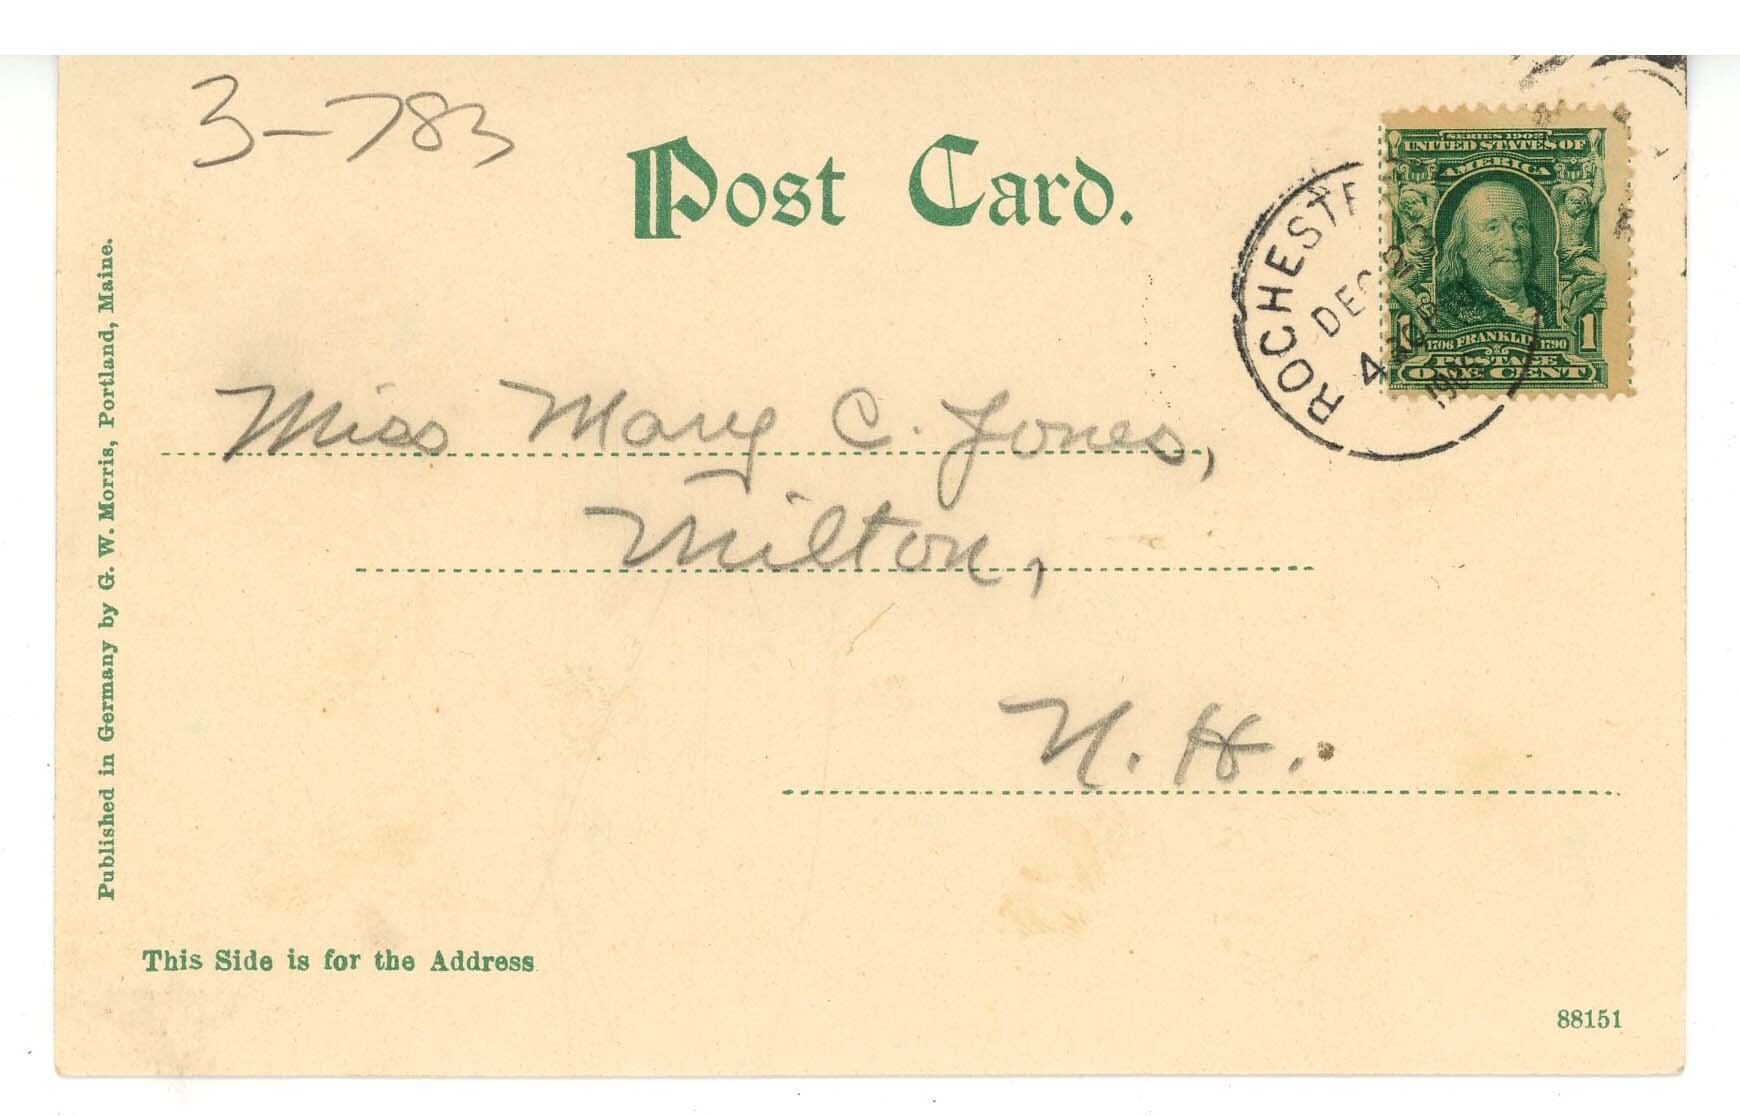 3-783
Post Card.
SERIES 1902
UNITED STATES OF
AMERICA
1706 FRANKLIN 1790
1 1
POSTAGE
ONE CENT
ROCHESTE
DEC
4 30P
Miss Mary C. Jones,
Milton,
N. H.
Published in Germany by G. W. Morris, Portland, Maine.
This Side is for the Address
88151